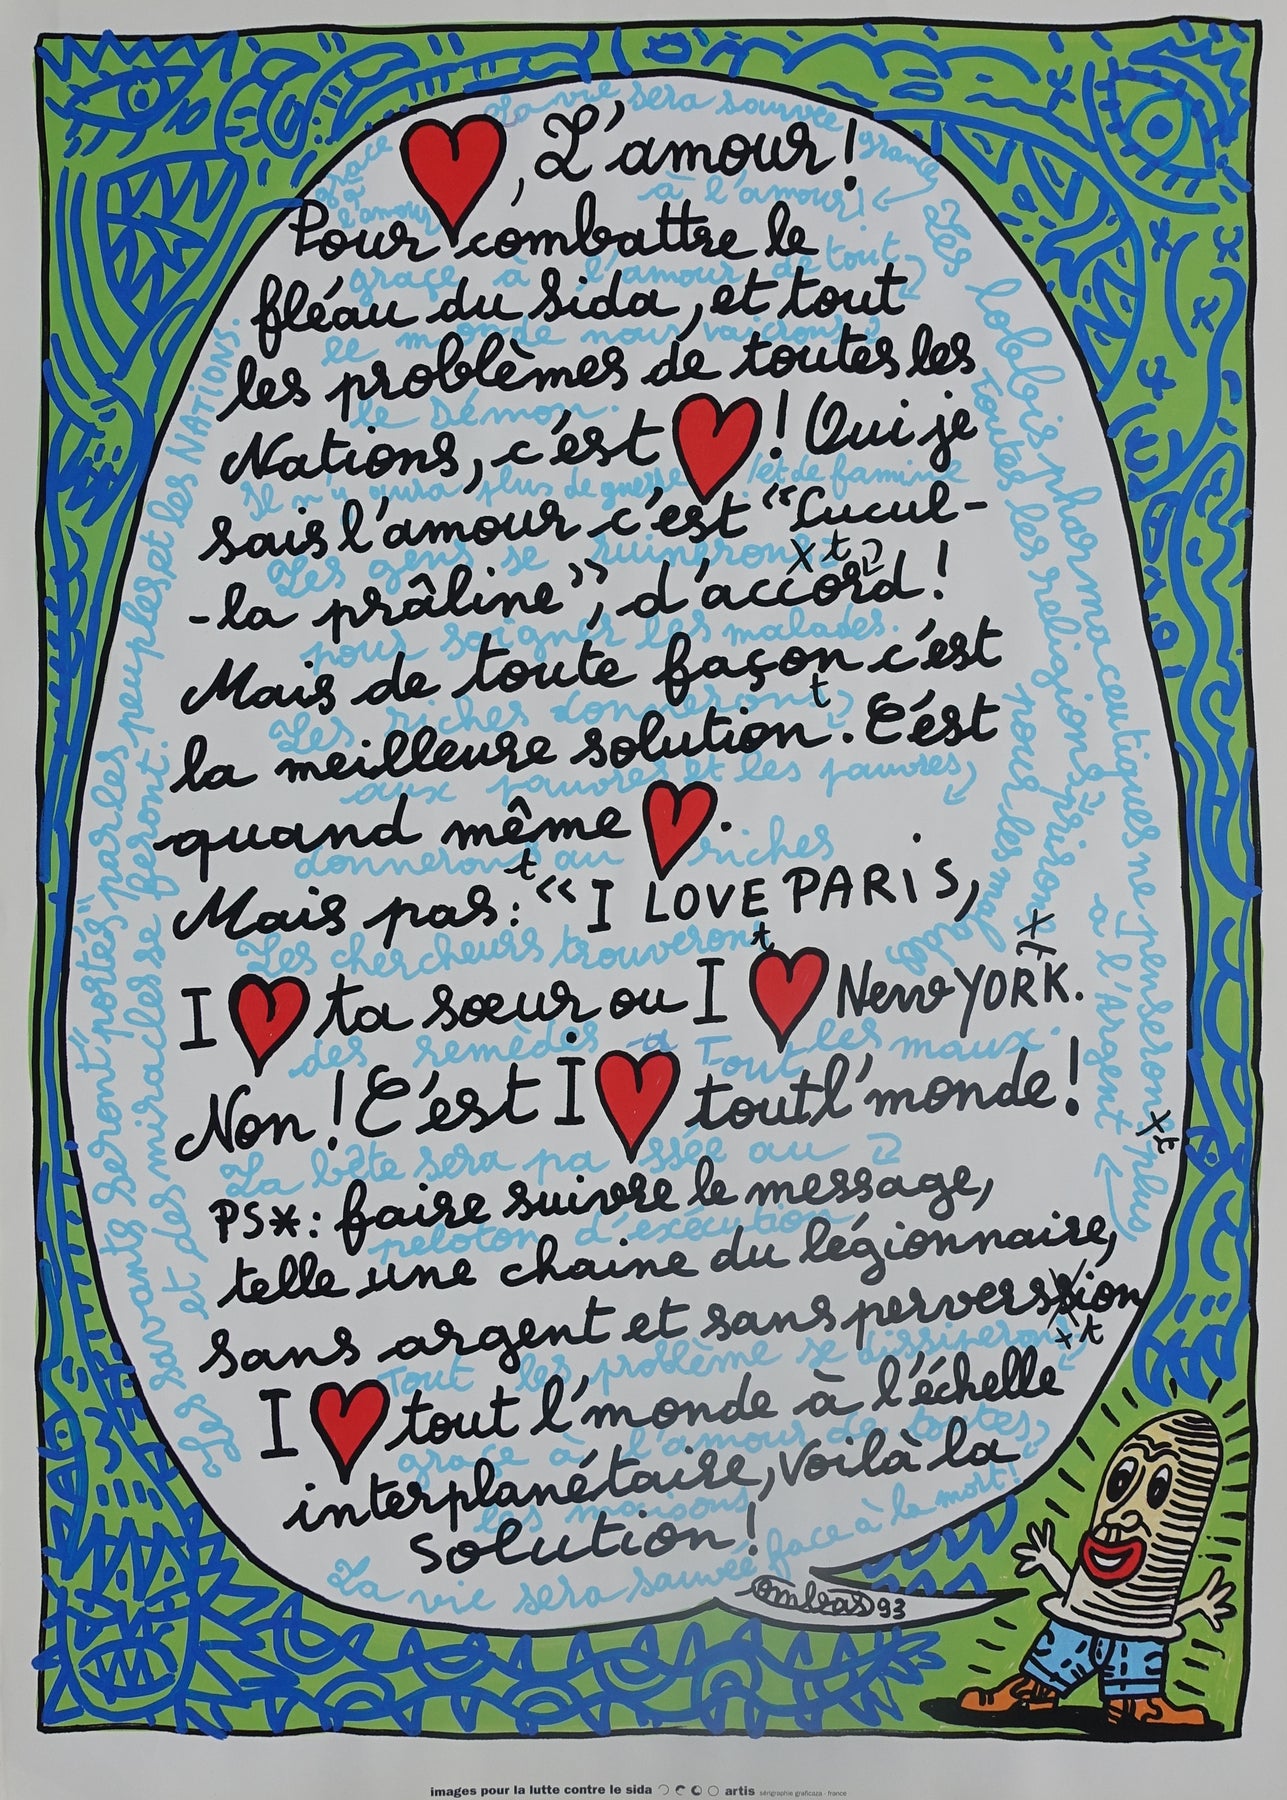 La vie sera sauvée grance
grace à l'amour
♥, L'amour!
à l'amour!
Pour combattre le
grace à l'amour de tout
fléau du Sida, et tout
le monde nous vaicrons
les problèmes de toutes les
le Démon.
Nations, c'est ♥! Oui je
Il n'y aura plus de guerre et de famine
sais l'amour c'est "Cucul-
Les gens se ruineront
-la prâline", d'accord!
pour soigner les malades.
Mais de toute façon c'est
Les riches donneront
la meilleure solution. C'est
aux pauvres et les pauvres,
quand même ♥.
donneront au riches
Mais pas: "I LOVE PARIS,
Les chercheurs trouveront
I ♥ ta sœur ou I ♥ New YORK.
des remèdes a Tout les maux.
Non! C'est I ♥ toutl'monde!
La bête sera passée au
PS*: faire suivre le message,
peloton d'exécution
telle une chaine du légionnaire,
sans argent et sans perverssion
Tout les problème se dissiperont
I ♥ tout l'monde à l'échelle
grace à l'amour de toutes
interplanétaire, Voilà la
les maisons
solution!
La vie sera sauvée face à la mort!
ombas 93
Les savants seront "portés" par les peuples et les NATIONS.
et des miracles se feront.
Les lobbis pharmaceutiques ne penseront plus
à l'Argent
Toutes les religions prirons
pour les malades
images pour la lutte contre le sida artis sérigraphie graficaza - france